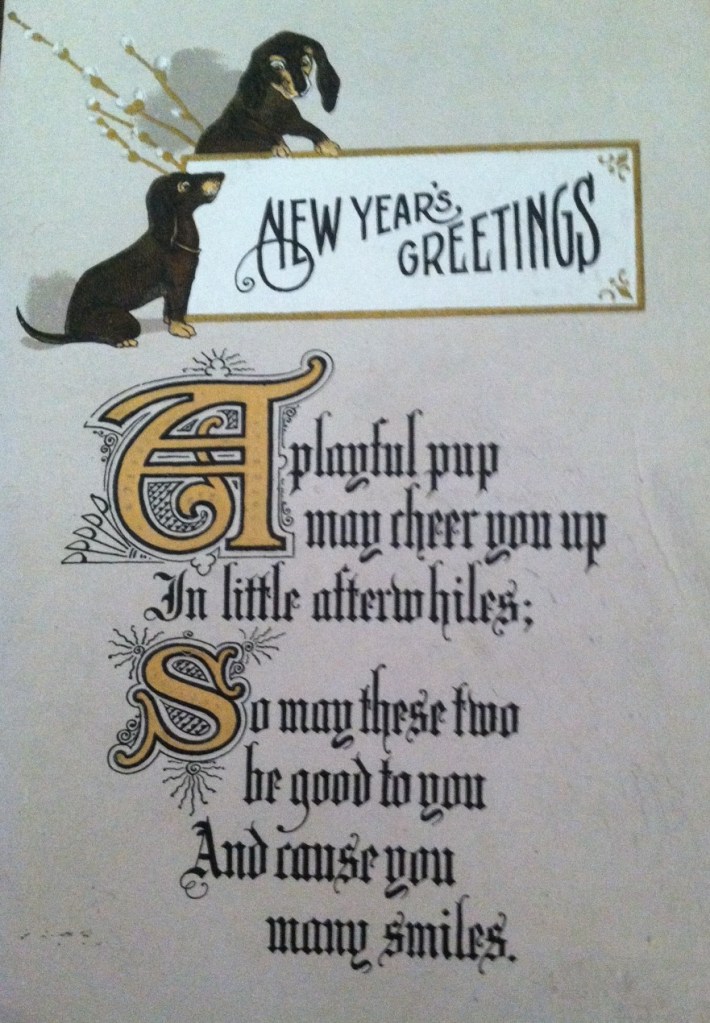 NEW YEAR'S
GREETINGS
A playful pup
may cheer you up
In little afterwhiles;
So may these two
be good to you
And cause you
many smiles.